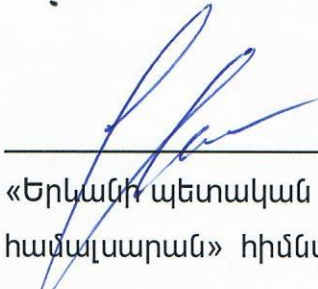 «Երևանի պետական
համալսարան» հիմնա